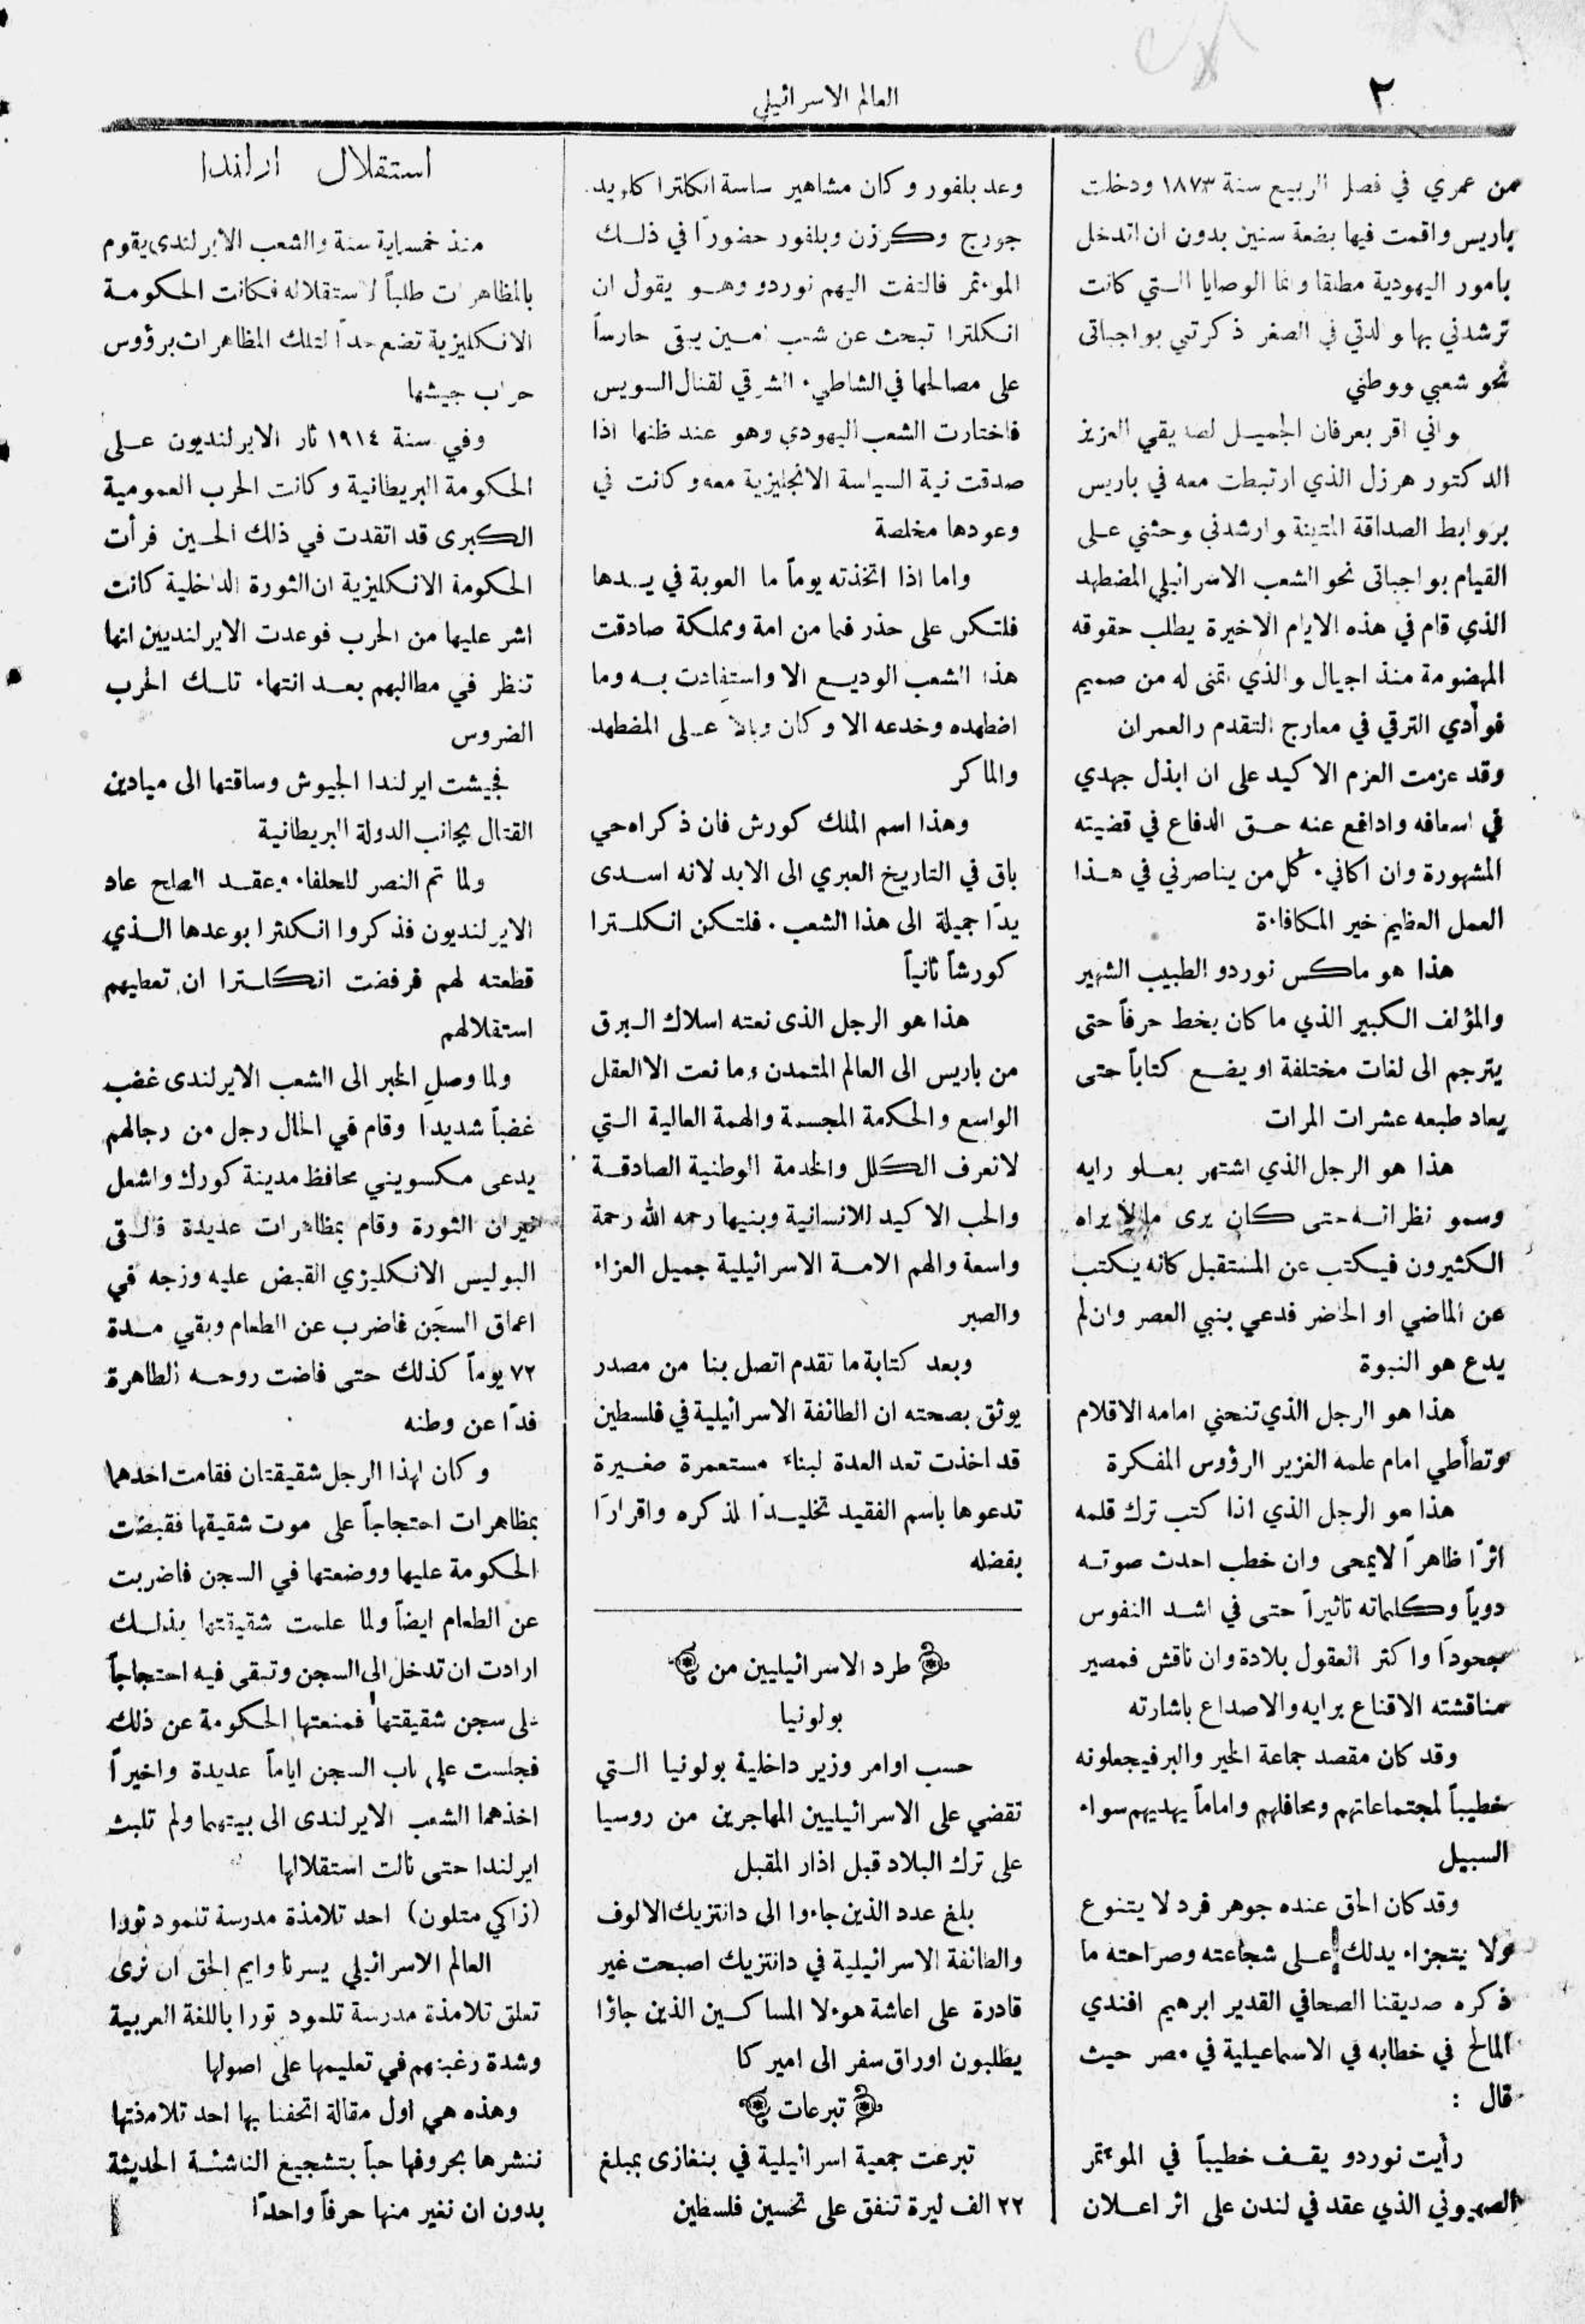 ٢
العالم الاسرائيلي
من عمري في فصل الربيع سنة ١٨٧٣ ودخلت
باريس واقمت فيها بضعة سنين بدون ان اتدخل
بامور اليهودية مطلقا وانما الوصايا الـتي كانت
ترشدني بها والدتي في الصغر ذكرتني بواجباتى
نحو شعبي ووطني
واني اقر بعرفان الجميـل لصديقي العزيز
الدكتور هرزل الذي ارتبطت معه في باريس
بروابط الصداقة المتينة وارشدني وحثني عـلى
القيام بواجباتى نحو الشعب الاسرائيلي المضطهد
الذي قام في هذه الايام الاخيرة يطلب حقوقه
المهضومة منذ اجيال والذي اتمنى له من صميم
فوأدي الترقي في معارج التقدم والعمران
وقد عزمت العزم الاكيد على ان ابذل جهدي
في اسعافه وادافع عنه حـق الدفاع في قضيته
المشهورة وان اكافيء كل من يناصرني في هـذا
العمل العظيم خير المكافاءة
هذا هو ماكس نوردو الطبيب الشهير
والمؤلف الكبير الذي ما كان يخط حرفاً حتى
يترجم الى لغات مختلفة او يضع كتاباً حتى
يعاد طبعه عشرات المرات
هذا هو الرجل الذي اشتهر بعـلو رايه
وسمو نظراتـه حتى كان يرى ما لا يراه
الكثيرون فيكتب عن المستقبل كانه يكتب
عن الماضي او الحاضر فدعي بنبي العصر وان لم
يدع هو النبوة
هذا هو الرجل الذي تنحني امامه الاقلام
وتطأطي امام علمه الغزير الرؤوس المفكرة
هذا هو الرجل الذي اذا كتب ترك قلمه
اثرًا ظاهراً لا يمحى وان خطب احدث صوتـه
دوياً وكلماته تاثيراً حتى في اشـد النفوس
جحوداً واكثر العقول بلادة وان ناقش فمصير
مناقشته الاقناع برايه والاصداع باشارته
وقد كان مقصد جماعة الخير والبر فيجعلونه
خطيباً لمجتماعاتهم ومحافلهم واماماً يهديهم سواء
السبيل
وقد كان الحق عنده جوهر فرد لا يتنوع
ولا يتجزاء يدلك عـلى شجاعته وصراحته ما
ذكره صديقنا الصحافي القدير ابرهيم افندي
المالح في خطابه في الاسماعيلية في مصر حيث
قال :
رأيت نوردو يقـف خطيباً في الموءتمر
الصهيوني الذي عقد في لندن على اثر اعـلان
وعد بلفور وكان مشاهير ساسة انكلترا كلويد
جورج وكرزن وبلفور حضوراً في ذلـك
الموءتمر فالتفت اليهم نوردو وهـو يقول ان
انكلترا تبحث عن شعب امـين يبقى حارساً
على مصالحها في الشاطيء الشرقي لقنال السويس
فاختارت الشعب اليهودي وهو عند ظنها اذا
صدقت نية السياسة الانجليزية معه وكانت في
وعودها مخلصة
واما اذا اتخذته يوماً ما العوبة في يـدها
فلتكن على حذر فما من امة ومملكة صادقت
هذا الشعب الوديـع الا واستفادت بـه وما
اضطهده وخدعه الا وكان وبالاً عـلى المضطهد
والماكر
وهذا اسم الملك كورش فان ذكراه حي
باق في التاريخ العبري الى الابد لانه اسـدى
يدًا جميلة الى هذا الشعب . فلتـكن انكلـترا
كورشاً ثانياً
هذا هو الرجل الذى نعته اسلاك الـبرق
من باريس الى العالم المتمدن وما نعت الا العقل
الواسع والحكمة المجسمة والهمة العالية الـتي
لا تعرف الكلل والخدمة الوطنية الصادقـة
والحب الاكيد للانسانية وبنيها رحمه الله رحمة
واسعة والهم الامـة الاسرائيلية جميل العزاء
والصبر
وبعد كتابة ما تقدم اتصل بنا من مصدر
يوثق بصحته ان الطائفة الاسرائيلية في فلسطين
قد اخذت تعد العدة لبناء مستعمرة صغـيرة
تدعوها باسم الفقيد تخليـدًا لذكره واقراراً
بفضله
طرد الاسرائيليين من
بولونيا
حسب اوامر وزير داخلية بولونيا الـتي
تقضي على الاسرائيليين المهاجرين من روسيا
على ترك البلاد قبل اذار المقبل
بلغ عدد الذين جاءوا الى دانتزيك الالوف
والطائفة الاسرائيلية في دانتزيك اصبحت غير
قادرة على اعاشة هوءلا المساكـين الذين جاؤا
يطلبون اوراق سفر الى اميركا
تبرعات
تبرعت جمعية اسرائيلية في بنغازى بمبلغ
٢٢ الف ليرة تنفق على تحسين فلسطين
استقلال ارلندا
منذ خمسماية سنة والشعب الايرلندى يقوم
بالمظاهرات طلباً لاستقلاله فكانت الحكومـة
الانكليزية تضع حداً لتلك المظاهرات برؤوس
حراب جيشها
وفي سنة ١٩١٤ ثار الايرلنديون عـلى
الحكومة البريطانية وكانت الحرب العمومية
الكبرى قد اتقدت في ذلك الحـين فرأت
الحكومة الانكليزية ان الثورة الداخلية كانت
اشر عليها من الحرب فوعدت الايرلنديين انها
تنظر في مطالبهم بعـد انتهاء تلـك الحرب
الضروس
فجيشت ايرلندا الجيوش وساقتها الى ميادين
القتال بجانب الدولة البريطانية
ولما تم النصر للحلفاء وعقـد الصلح عاد
الايرلنديون فذكروا انكلترا بوعدها الـذي
قطعته لهم فرفضت انكلـترا ان تعطيهم
استقلالهم
ولما وصل الخبر الى الشعب الايرلندى غضب
غضباً شديداً وقام في الحال رجل من رجالهم
يدعى مكسويني محافظ مدينة كورك واشعل
نيران الثورة وقام بمظاهرات عديدة فالـقى
البوليس الانكليزي القبض عليه وزجه في
اعماق السجن فاضرب عن الطعام وبقي مـدة
٧٢ يوماً كذلك حتى فاضت روحـه الطاهرة
فدًا عن وطنه
وكان لهذا الرجل شقيقتان فقامت احدهما
بمظاهرات احتجاجاً على موت شقيقها فقبضت
الحكومة عليها ووضعتها في السجن فاضربت
عن الطعام ايضاً ولما علمت شقيقتها بذلـك
ارادت ان تدخل الى السجن وتبقى فيه احتجاجاً
على سجن شقيقتها فمنعتها الحكومة عن ذلك
فجلست على باب السجن اياماً عديدة واخيراً
اخذهما الشعب الايرلندى الى بيتهما ولم تلبث
ايرلندا حتى نالت استقلالها
(زاكي متلون) احد تلامذة مدرسة تلمود تورا
العالم الاسرائيلي يسرنا وايم الحق ان نرى
تعلق تلامذة مدرسة تلمود تورا باللغة العربية
وشدة رغبتهم في تعليمها على اصولها
وهذه هي اول مقالة اتحفنا بها احد تلامذتها
ننشرها بحروفها حباً بتشجيع الناشئـة الحديثة
بدون ان نغير منها حرفاً واحدًا